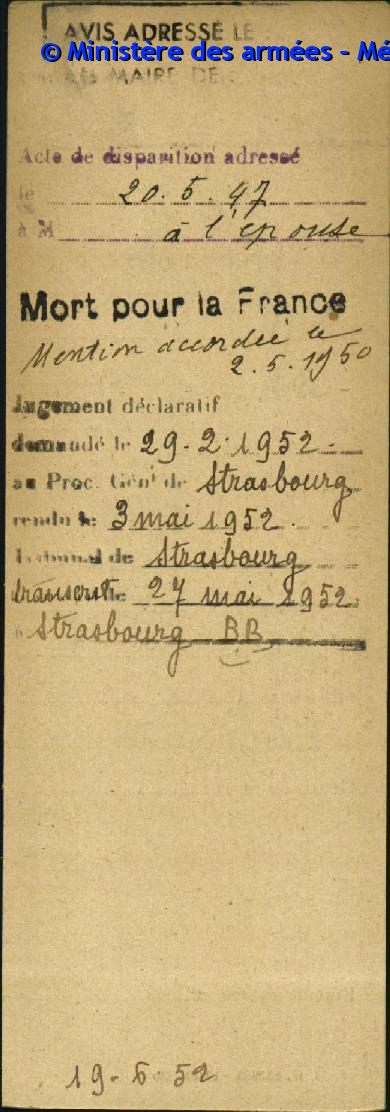 AVIS ADRESSÉ LE
© Ministère des armées - Mé
MAIRE DE
Acte de disparition adressé
le 20.5.47
à M à l'épouse
Mort pour la France
Mention accordée le
2.5.1950
Jugement déclaratif
demandé le 29-2-1952.
au Proc. Génl de Strasbourg
rendu le 3 mai 1952.
Tribunal de Strasbourg
transcrit le 27 mai 1952.
Strasbourg BB
19-6 52